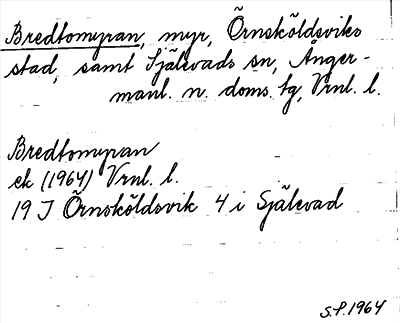 Bredtomyran, myr, Örnsköldsviks
stad, samt Själevads sn, Ånger-
manl. n. doms. tg, Vrnl. l.
Bredtomyran
ek (1964) Vrnl. l.
19 J Örnsköldsvik 4 i Själevad
S.P. 1964